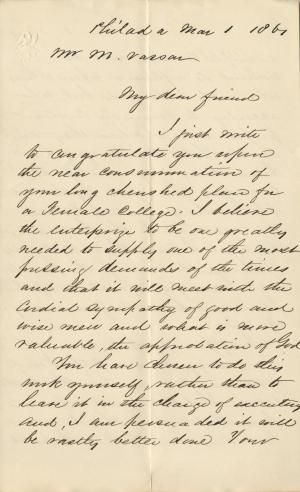 Philad a Mar 1 1861
Mr M. Vassar
My dear friend
I just write
to congratulate you upon
the near consummation of
your long cherished plans for
a Female College. I believe
the enterprize to be one greatly
needed to supply one of the most
pressing demandes of the times
and that it will meet with the
cordial sympathy of good and
wise men and what is more
valuable, the approbation of God
You have chosen to do this
work yourself, rather than to
leave it in the charge of executors
and, I am persuaded it will
be vastly better done Your